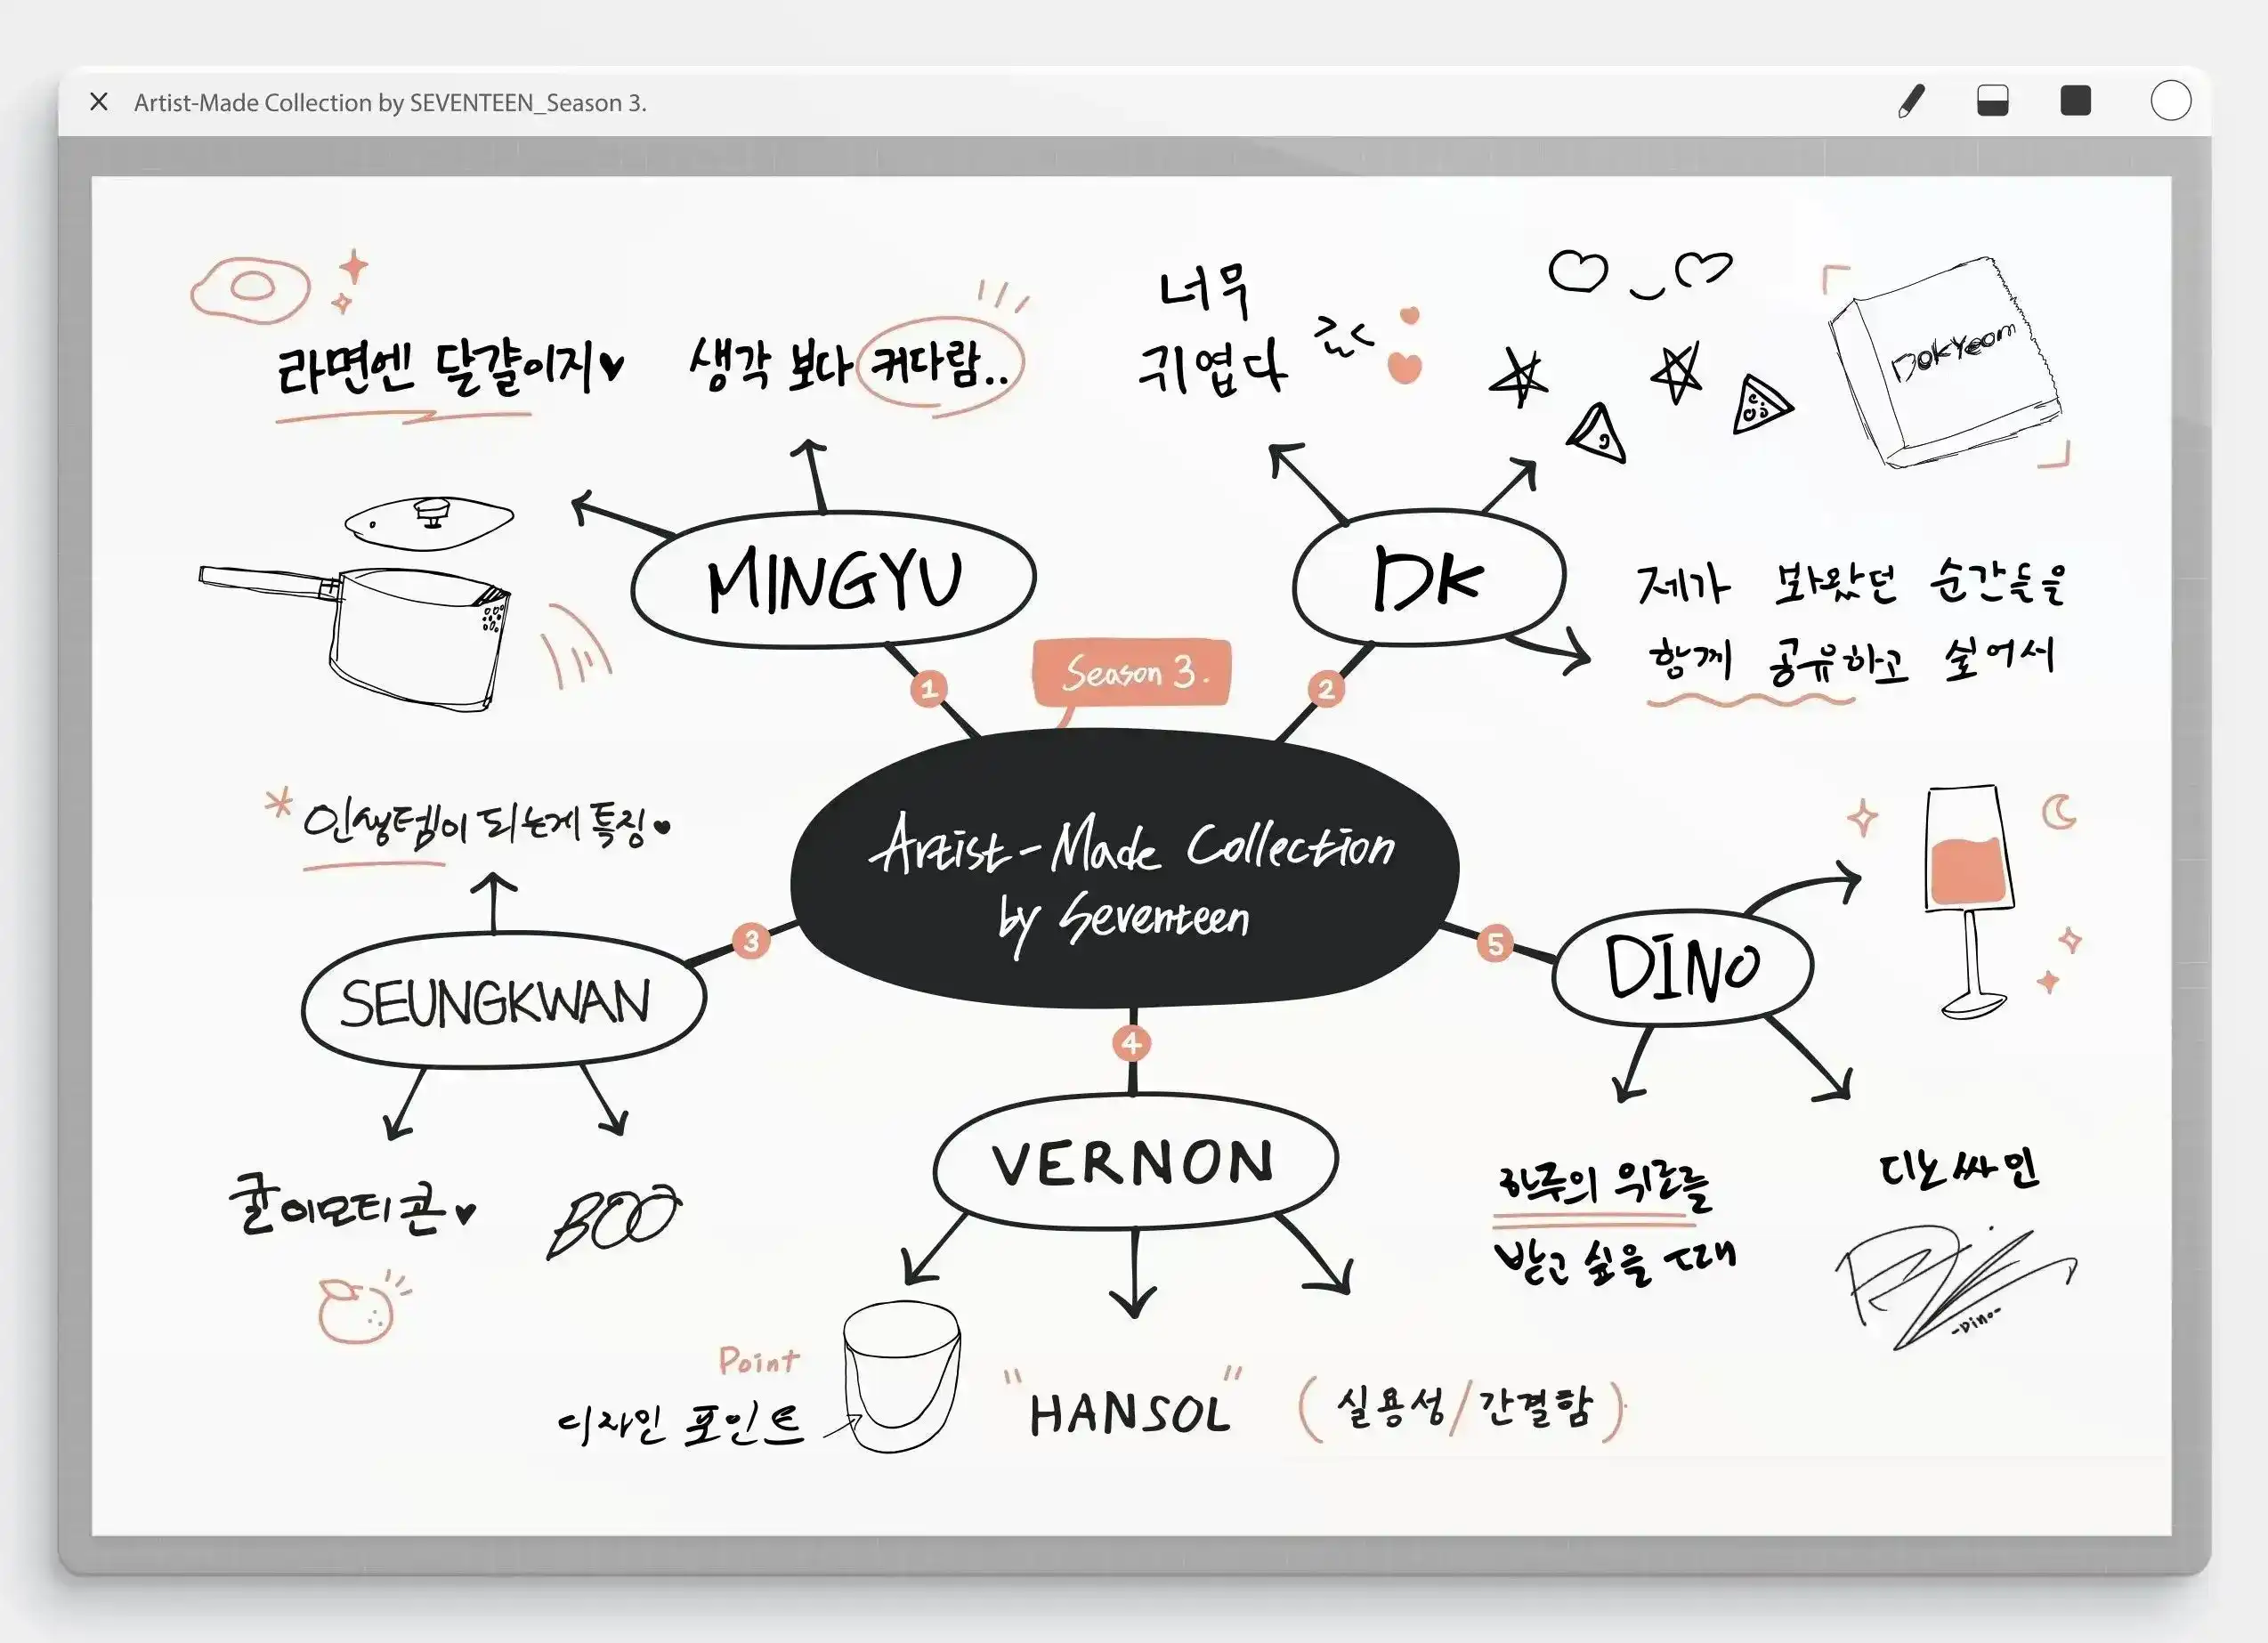 Artist-Made Collection by SEVENTEEN_Season 3.
라면엔 달걀이지♥
생각 보다 커다람..
MINGYU
너무
귀엽다
DoKYeom
DK
제가 봐왔던 순간들을
함께 공유하고 싶어서
1
2
Season 3.
Artist-Made Collection
by Seventeen
* 인생템이 되는게 특징♥
3
SEUNGKWAN
귤이모티콘♥
BOO
4
VERNON
Point
디자인 포인트
"HANSOL"
(실용성/간결함)
5
DINO
하루의 위로를
받고 싶을 때
디노 싸인
-Dino-